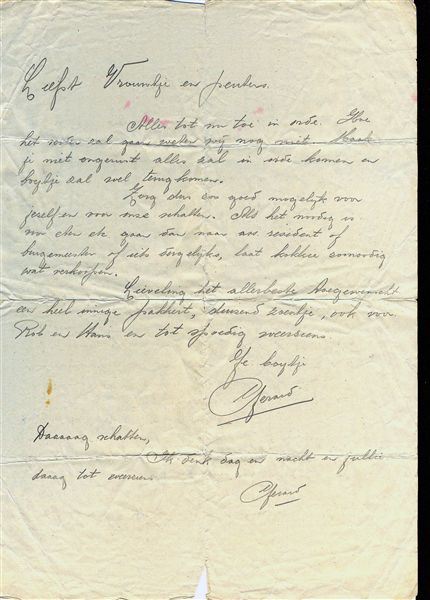 Liefst Vrouwtje en peuters.
Alles tot nu toe in orde. Hoe
het verder zal gaan weten wij nog niet. Maak
je niet ongerust alles zal in orde komen en
boytje zal wel terugkomen.
Zorg dan zoo goed mogelijk voor
jezelf en voor onze schatten. Als het noodig is
om eten etc gaan dan naar ass. resident of
burgemeester of iets dergelijks, laat kokkie zoonoodig
wat verkoopen.
Lieveling het allerbeste toegewenscht
een heel innige pakkert, duizend zoentjes, ook voor
Rob en Hans en tot spoedig weerziens.
Je boytje
Gerard
Daaaaag schatten,
Ik denk dag en nacht en jullie
daaag tot weerziens
Gerard